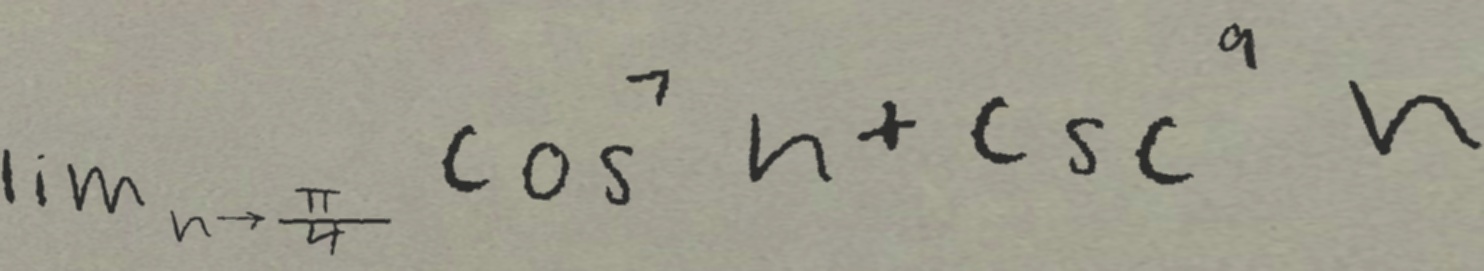 lim n→π/4 cos⁷ n + csc⁹ n